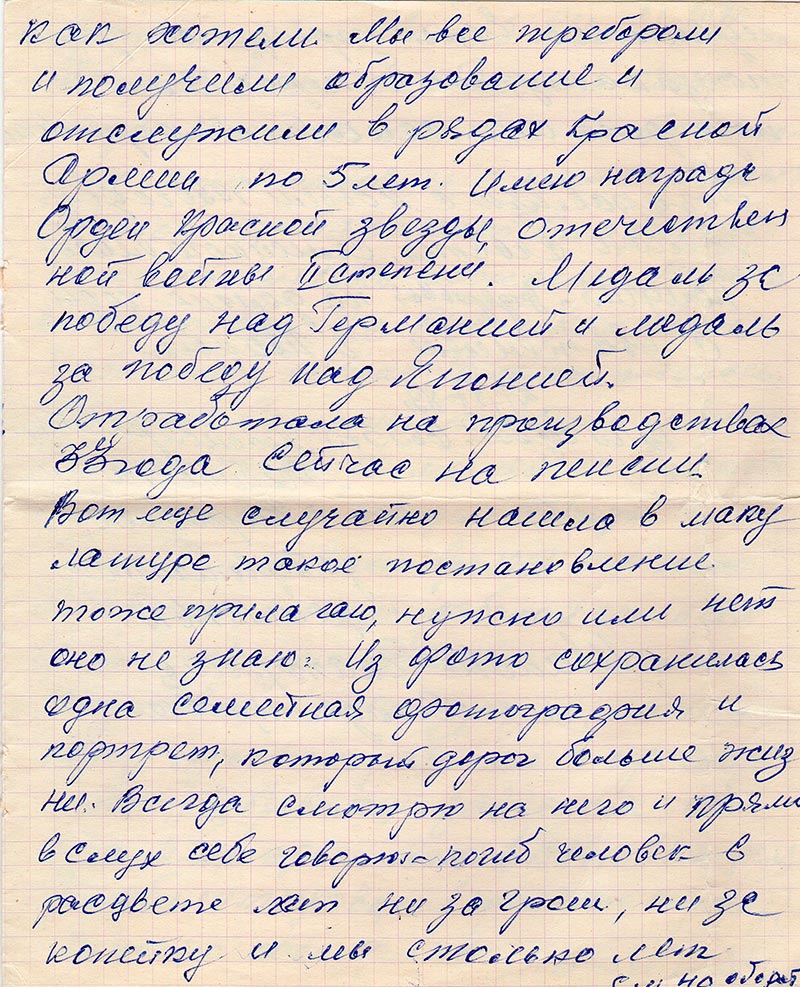 как хотели. Мы все треборопи
и получили образование и
отслужили в рядах Красной
Армии по 5 лет. Имею награды
Орден Красной звезды, Отечествен
ной войны II степени. Медаль за
победу над Германией и медаль
за победу над Японией.
Отработала на производствах
33 года. Сейчас на пенсии.
Вот еще случайно нашла в маку
латуре такое постановление
тоже прилагаю, нужно или нет
оно не знаю. Из фото сохранилась
одна семейная фотография и
портрет, который дорог больше жиз
ни. Всегда смотрю на него и прямо
в слух себе говорю – погиб человек в
расцвете лет ни за грош, ни за
копейку и мы столько лет
см на оборот